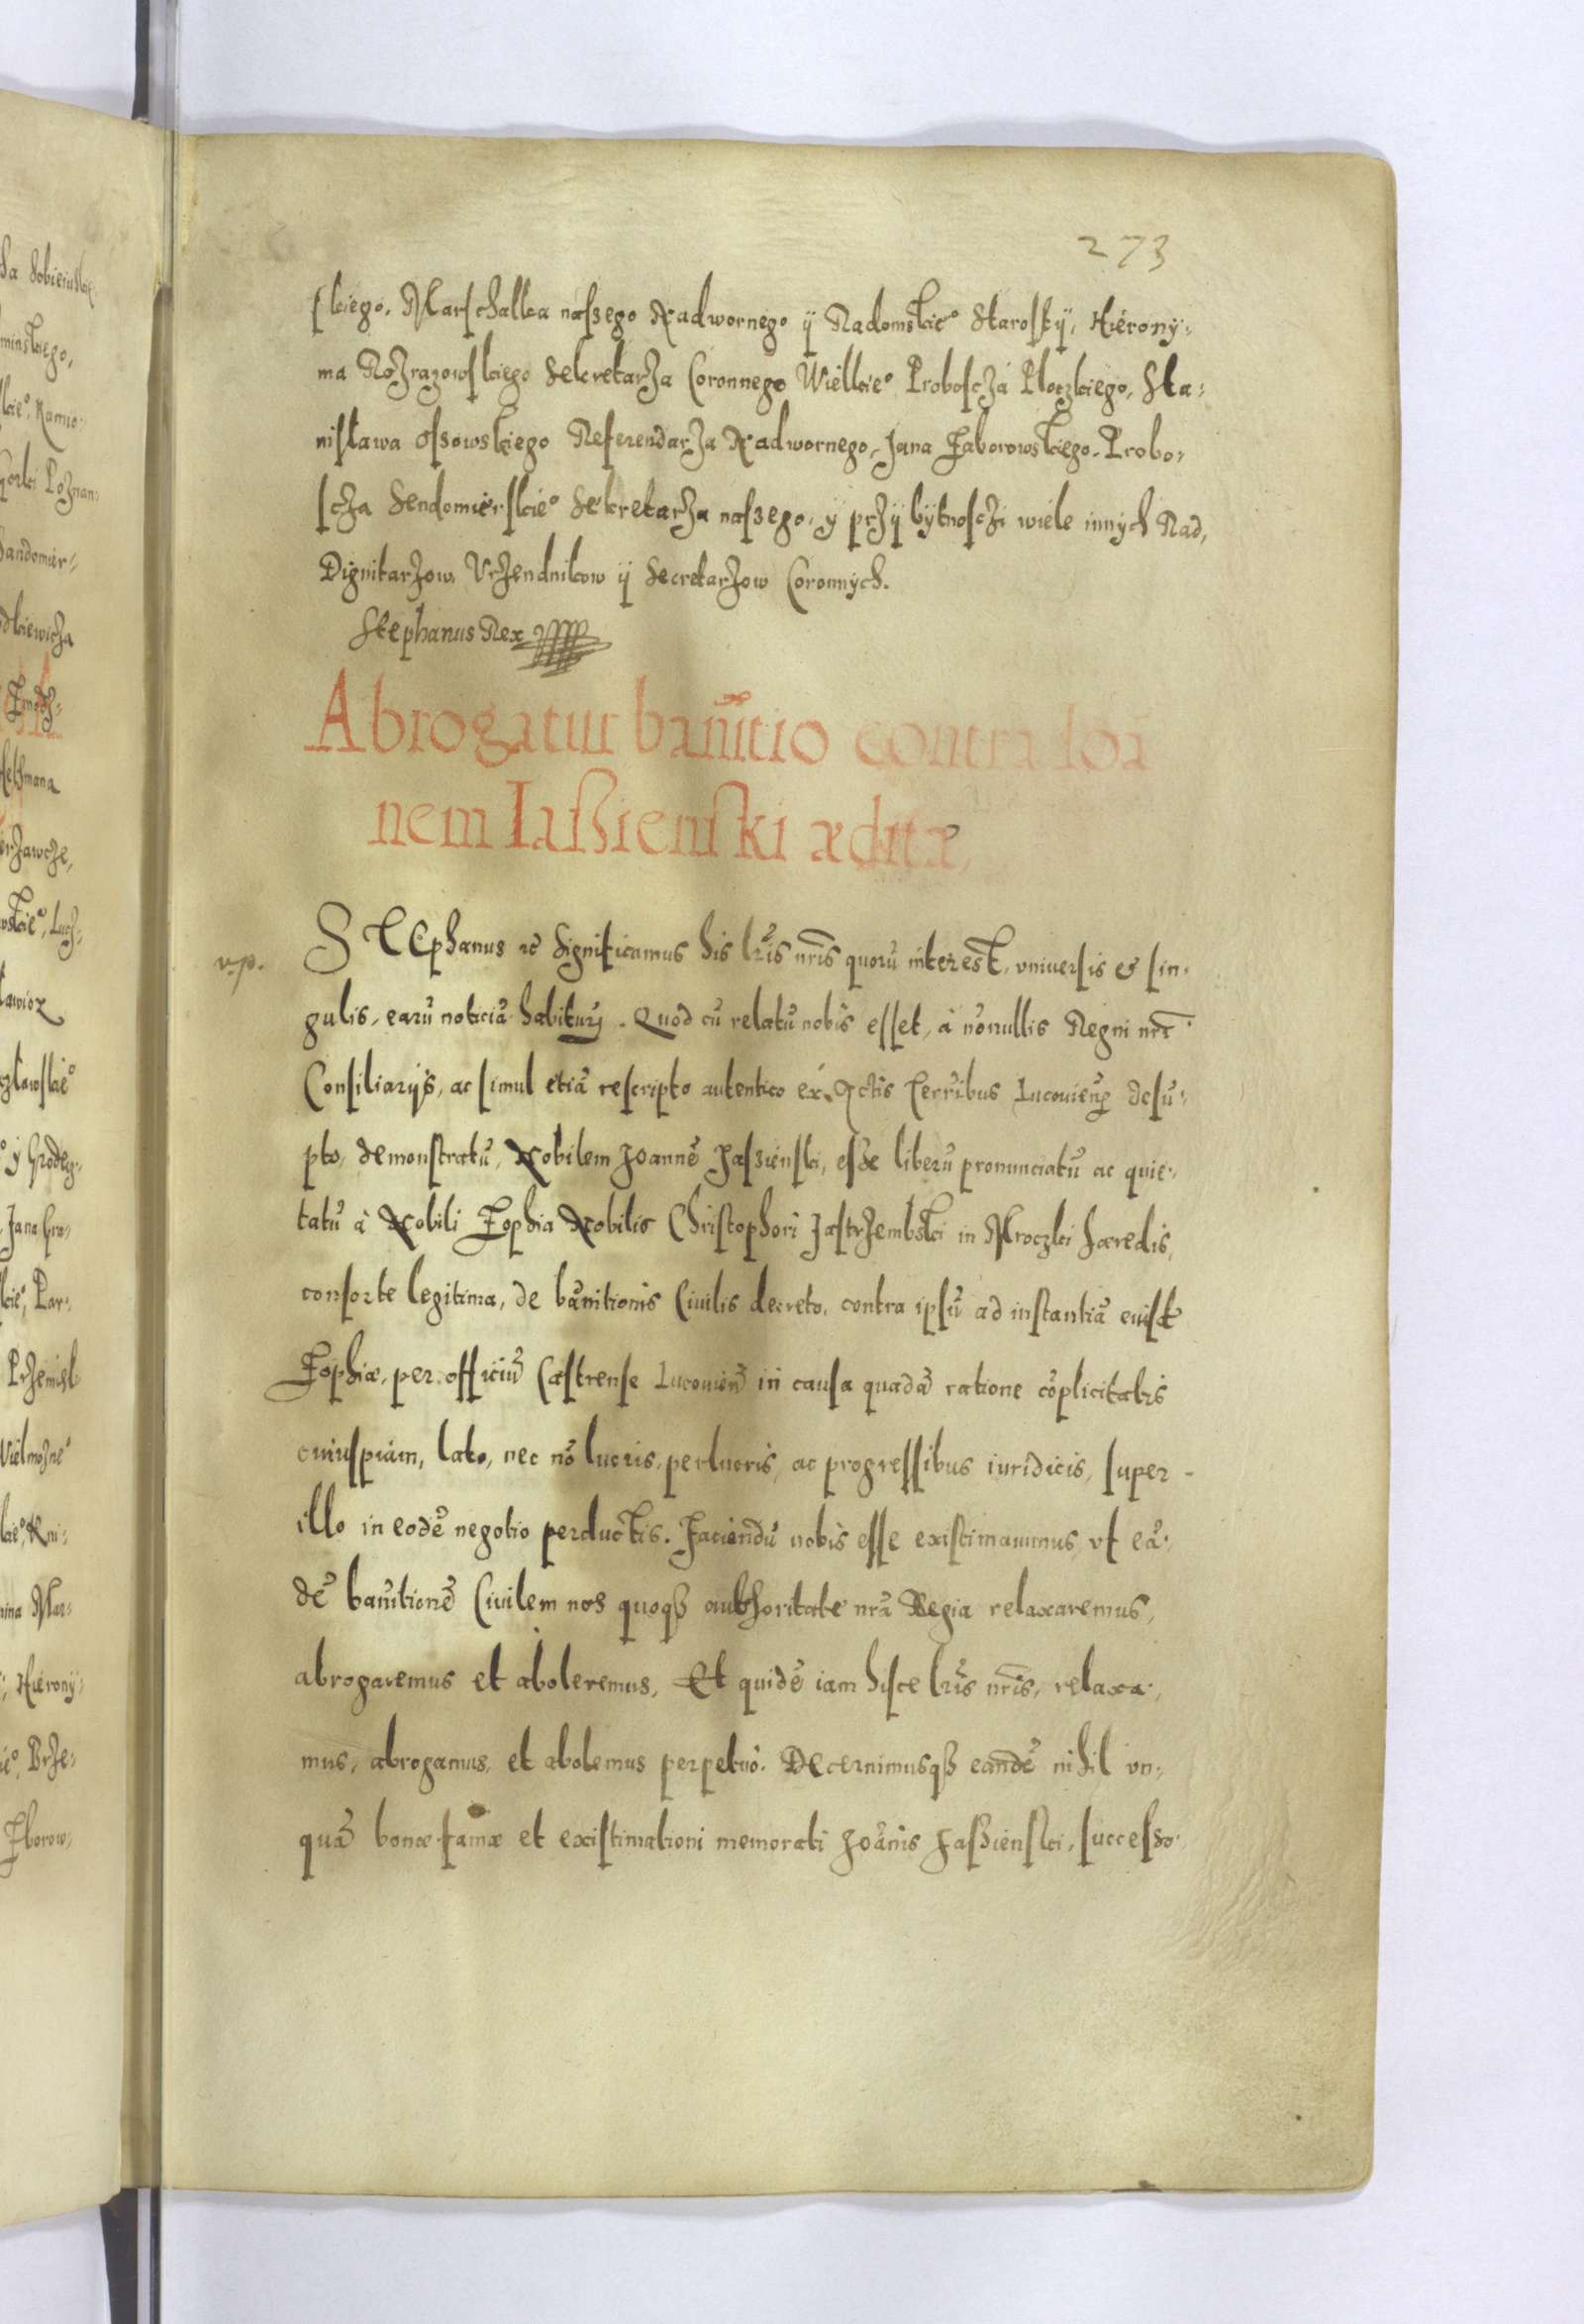 273
skiego, Marschalka naszego Nadwornego ÿ Radomskie° Starostÿ, Hiéronÿ:
ma Rozrazowskiego Sekretarza Coronnego Wielkie° Proboscza Ploczkiego, Sta:
nisława Ossowskiego Referendarza Nadwornego, Jana Zaborowskiego. Probo:
scza Sendomierskie° Sekretarza naszego, ÿ przÿ bÿtnosczi wiele innÿch Rad,
Dignitarzow, Vrzendnikow ÿ Secretarzow Coronnÿch.
Stephanus Rex
Abrogatur bañitio contra Ioã
nem Iaßienski ædita
v.p.
STEphanus rc̃ Significamus his lr̃is nr̃is quorũ interest, vniuersis & sin:
gulis, earũ noticiã habituris. Quod cũ relatũ nobis esset, à nõnullis Regni nr̃i
Consiliarijs, ac simul etiã rescripto autentico ex Actis Terr̃ibus Lucouien̄ desũ:
pto, demonstratũ, Nobilem Joannẽ Jaszienski, esse liberũ pronunciatũ ac quie:
tatũ à Nobili Zophia Nobilis Christophori Jastrzembski in Mroczki hæredis,
consorte legitima, de bãnitionis Ciuilis decreto, contra ipsũ ad instantiã eiusd̃
Zophiæ, per officiũ Castrense Lucouien̄ in causa quadã ratione cõplicitatis
cuiuspiam, lato, nec nõ lucris, perlucris, ac progressibus iuridicis, super
illo in eodẽ negotio perductis. Faciendũ nobis esse existimauimus, vt eã:
dẽ bañitionẽ Ciuilem nos quoqß authoritate nr̃a Regia relaxaremus,
abrogaremus et aboleremus, Et quidẽ iam hisce lr̃is nr̃is, relaxa:
mus, abrogamus, et abolemus perpetuò. Decernimusqß eandẽ nihil vn:
quã bonæ famæ et existimationi memorati Joãnis Jaßienski, successo: